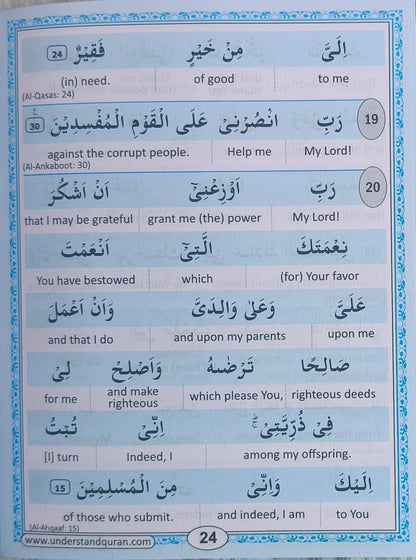 اِلَىَّ مِنْ خَيْرٍ فَقِيْرٌ 24
to me of good (in) need.
(Al-Qasas: 24)
19 رَبِّ انْصُرْنِىْ عَلَى الْقَوْمِ الْمُفْسِدِيْنَ 30
My Lord! Help me against the corrupt people.
(Al-Ankaboot: 30)
20 رَبِّ اَوْزِعْنِىْٓ اَنْ اَشْكُرَ
My Lord! grant me (the) power that I may be grateful
نِعْمَتَكَ الَّتِىْٓ اَنْعَمْتَ
(for) Your favor which You have bestowed
عَلَىَّ وَعَلٰى وَالِدَىَّ وَاَنْ اَعْمَلَ
upon me and upon my parents and that I do
صَالِحًا تَرْضٰىهُ وَاَصْلِحْ لِىْ
righteous deeds which please You, and make righteous for me
فِىْ ذُرِّيَّتِىْ ۚ اِنِّىْ تُبْتُ
among my offspring. Indeed, I [I] turn
اِلَيْكَ وَاِنِّىْ مِنَ الْمُسْلِمِيْنَ 15
to You and indeed, I am of those who submit.
(Al-Ahqaaf: 15)
www.understandquran.com 24